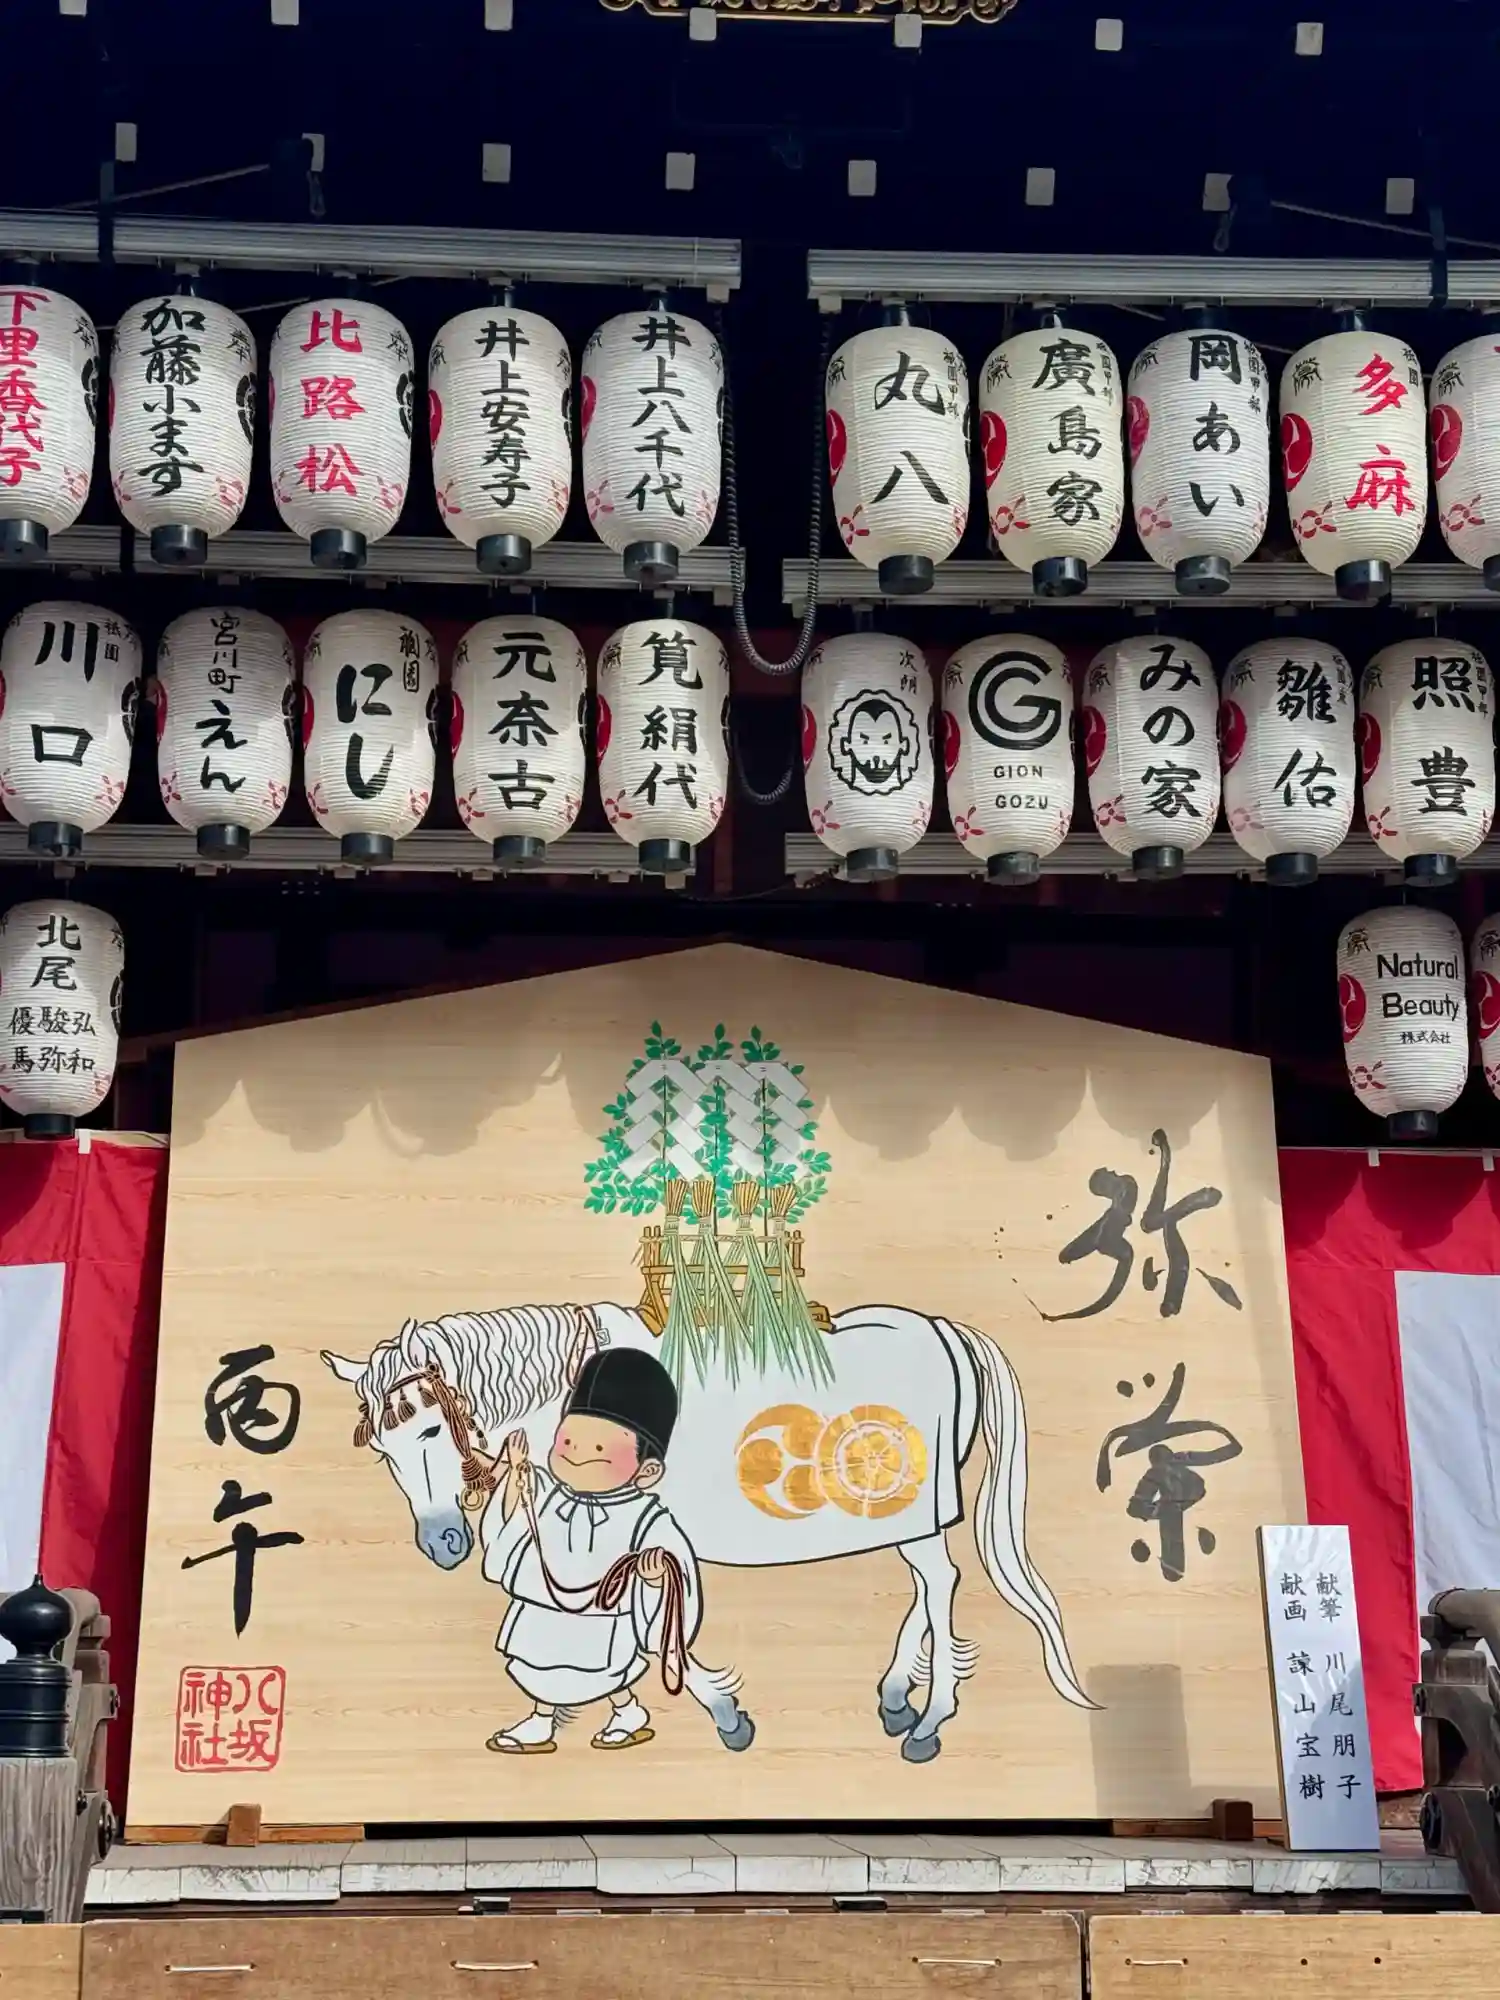 下里香代子
加藤小ます
比路松
井上安寿子
井上八千代
祇園甲部
丸八
祇園甲部
廣島家
祇園甲部
岡あい
祇園
多麻
祇園
川口
宮川町
えん
祇園
にし
元奈古
筧絹代
次朗
GION
GOZU
みの家
雛佑
祇園甲部
照豊
北尾
弘和
駿弥
優馬
Natural
Beauty
株式会社
弥栄
丙午
八坂
神社
献筆 川尾朋子
献画 諫山宝樹